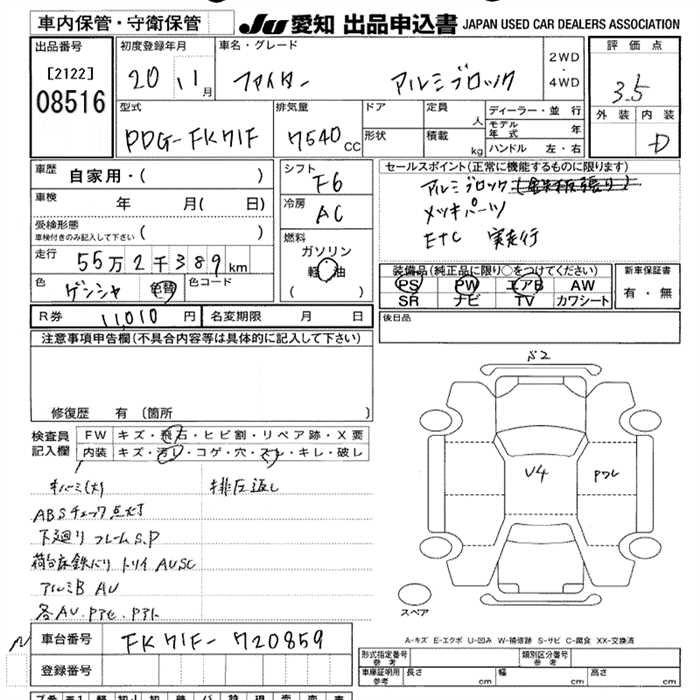 車内保管・守衛保管
JU 愛知 出品申込書 JAPAN USED CAR DEALERS ASSOCIATION
出品番号
[2122]
08516
初度登録年月
20 11月
車名・グレード
ファイター アルミブロック
2WD
・
4WD
評価点
3.5
外装 内装
D
型式
PDG-FK71F
排気量
7540 CC
ドア
形状
定員 人
積載 kg
ディーラー・並行
モデル年式 年
ハンドル 左・右
車歴
自家用・( )
車検
年 月( 日)
受検形態
車検付きのみ記入して下さい ( )
走行
55万2千389km
色
ゲンシャ 色替
色コード
シフト
F6
冷房
AC
燃料
ガソリン
軽油
( )
セールスポイント(正常に機能するものに限ります)
アルミブロック(鉄板張り)
メッキパーツ
ETC 実走行
装備品(純正品に限り○をつけてください)
PS PW エアB AW
SR ナビ TV カワシート
新車保証書
有・無
R券 11,010 円
名変期限 月 日
後日品
注意事項申告欄(不具合内容等は具体的に記入して下さい)
修復歴 有(箇所 )
検査員記入欄
FW キズ・飛石・ヒビ割・リペア跡・X要
内装 キズ・汚レ・コゲ・穴・スレ・キレ・破レ
キバミ(大) 排圧返し
ABSチェック点灯
下廻り フレームS.P
荷台床鉄バリ トリイ AUSC
アルミB AU
各AU・Pアセ・Pアト
S2
V4
Pワレ
スペア
A-キズ E-エクボ U-凹み W-補修跡 S-サビ C-腐食 XX-交換済
車台番号
FK71F-720859
登録番号
形式指定番号
参考
類別区分番号
参考
車庫証明用
参考
長さ cm
幅 cm
高さ cm